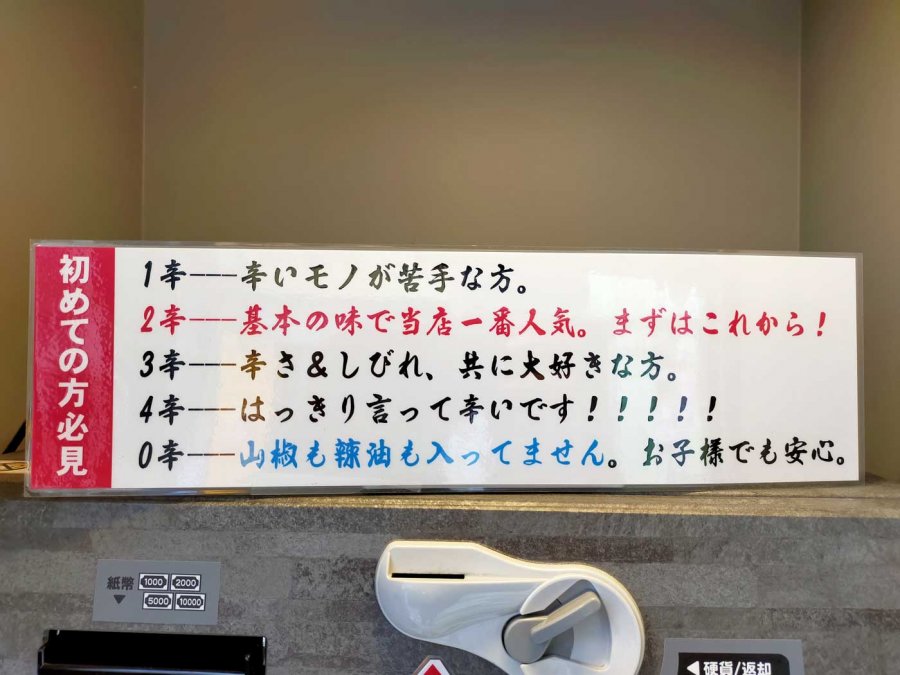 初めての方必見
1辛──辛いモノが苦手な方。
2辛──基本の味で当店一番人気。まずはこれから!
3辛──辛さ&しびれ、共に大好きな方。
4辛──はっきり言って辛いです!!!!!
0辛──山椒も辣油も入ってません。お子様でも安心。
紙幣 1000 2000
▼ 5000 10000
◀硬貨/返却